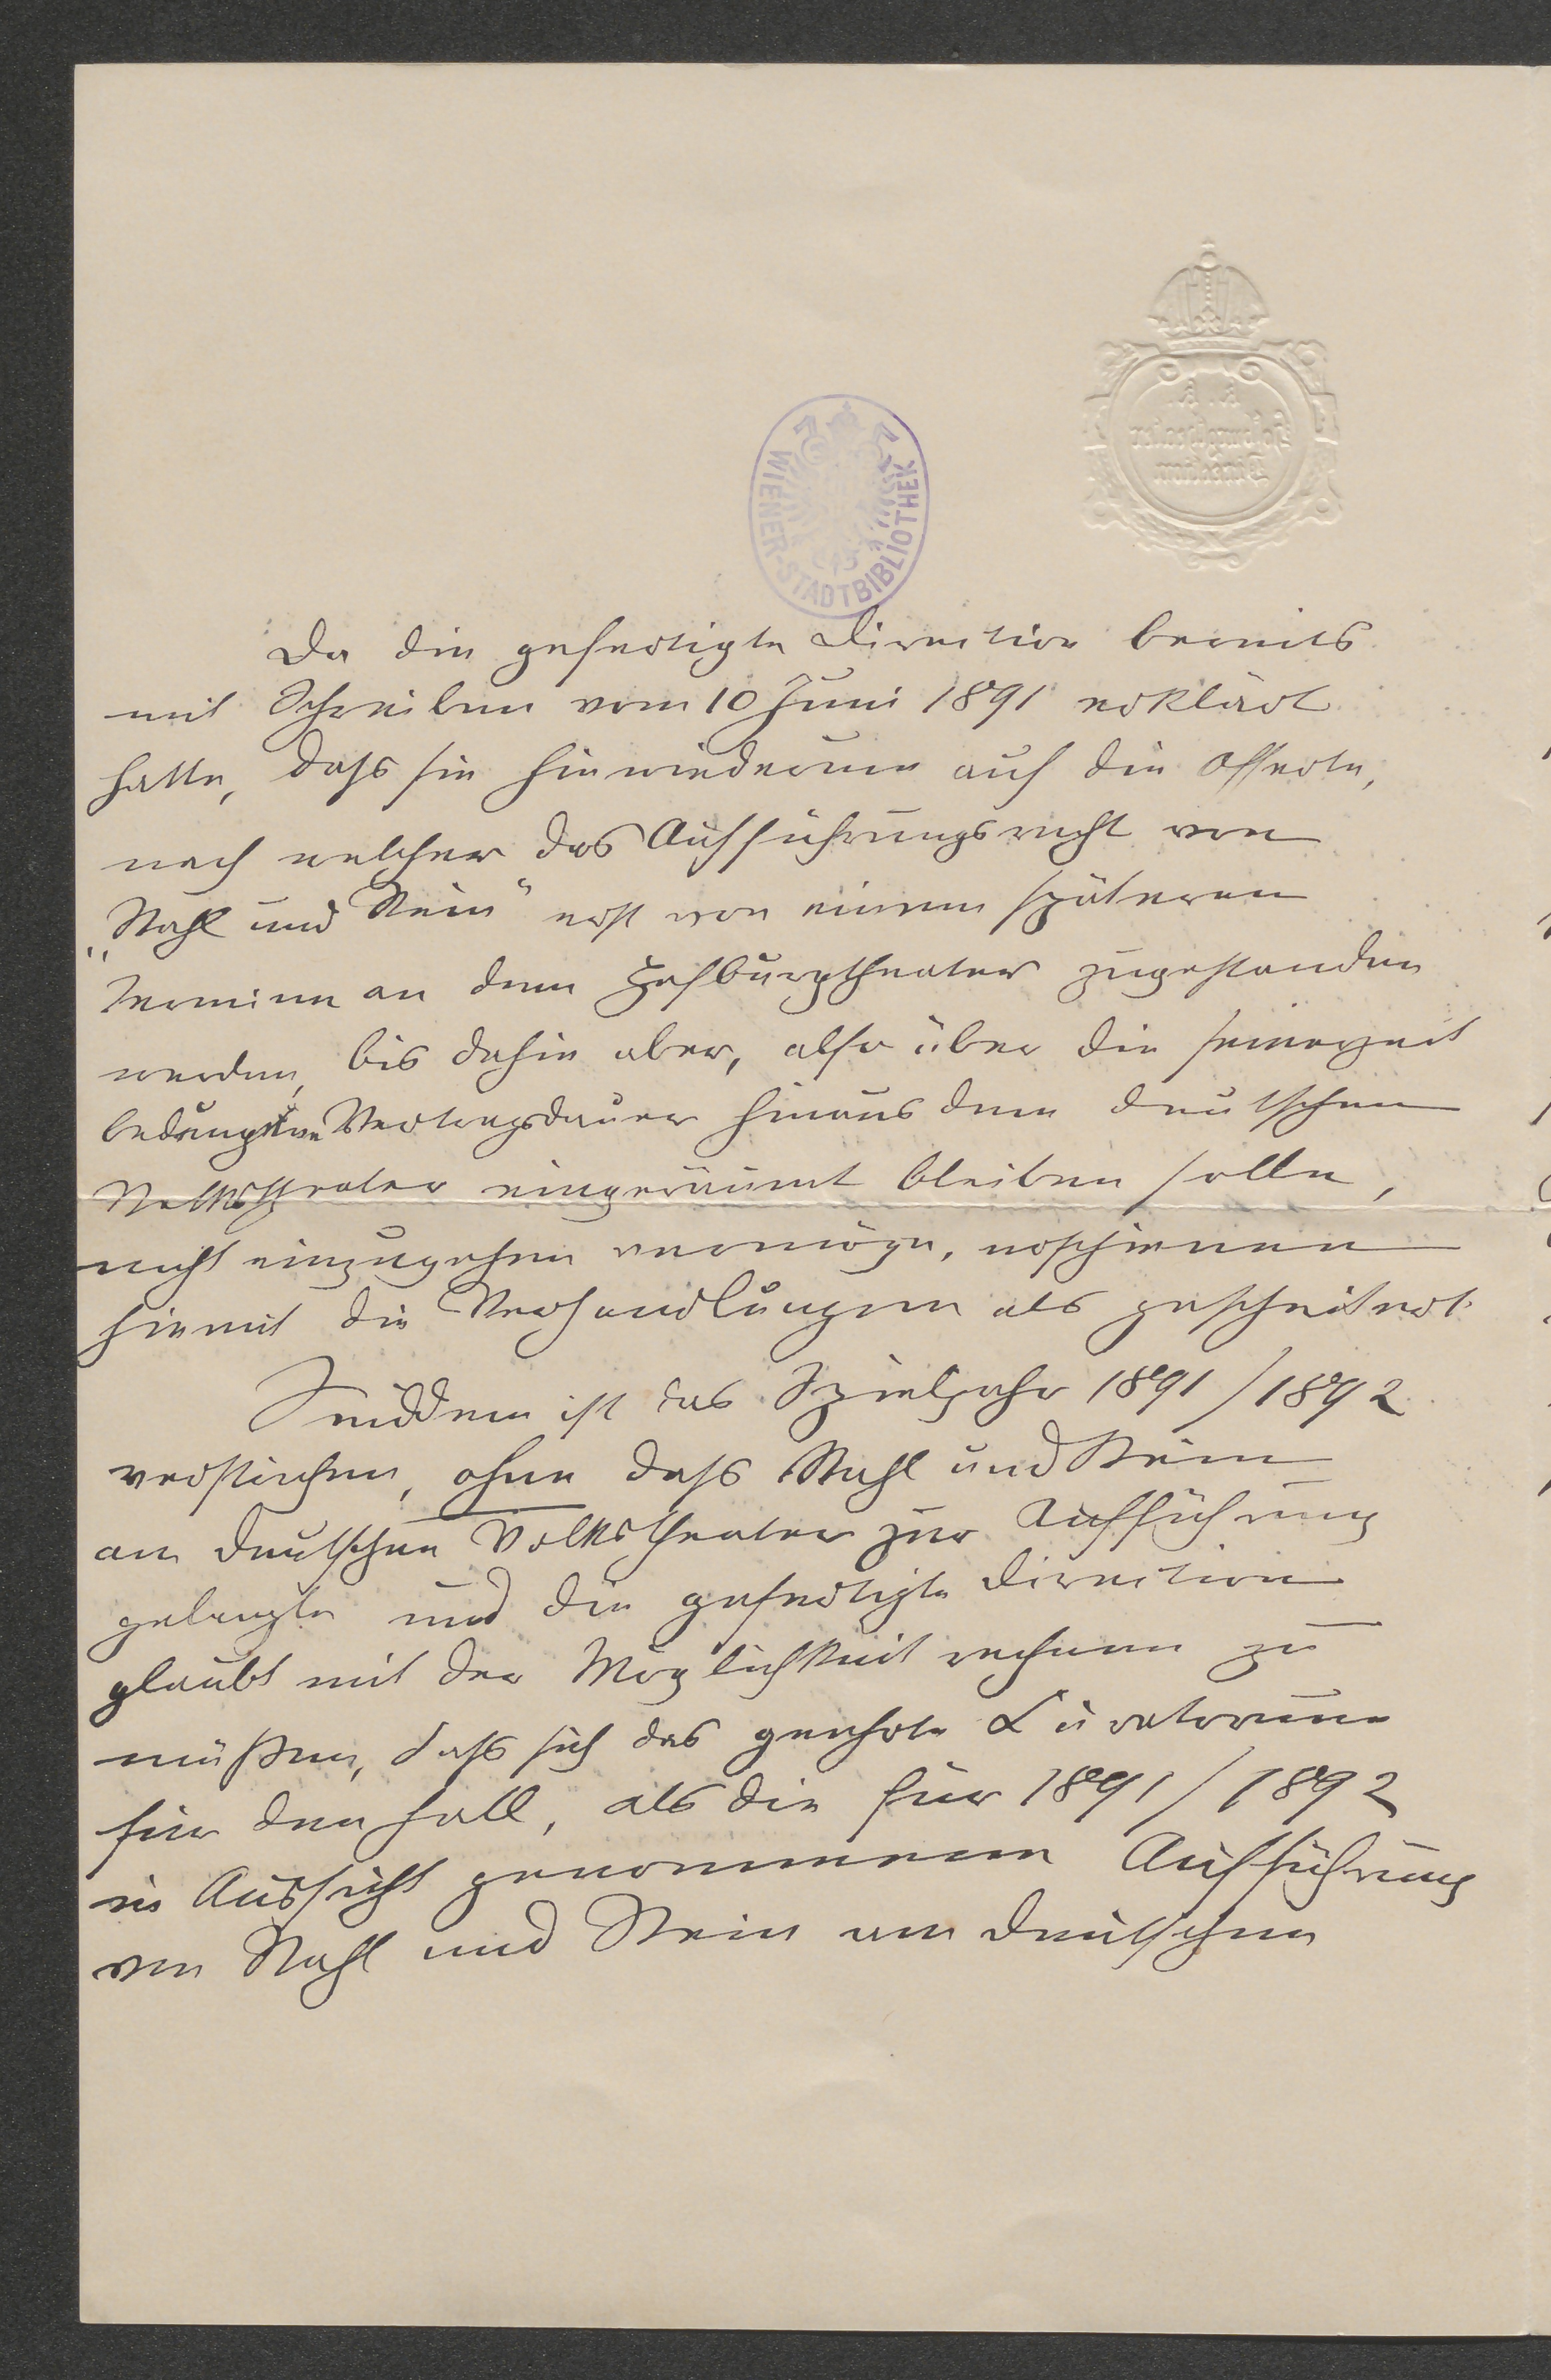 k. k.
Hofburgtheater
Direction
WIENER-STADTBIBLIOTHEK
Da die gefertigte Direction bereits
mit Schreiben vom 10 Juni 1891 erklärt
hatte, daſs sie hinwiederum auf die Offerte,
nach welcher das Aufführungsrecht von
„Stahl und Stein“ erst von einem späteren
Termine an dem Hofburgtheater zugestanden
werden, bis dahin aber, also über die seinerzeit
bedungene Vertragsdauer hinaus dem deutschen
Volkstheater eingeräumt bleiben solle,
nicht einzugehen vermöge, erschienen
hiemit die Verhandlungen als gescheitert.
Seitdem ist das Spieljahr 1891/1892
verstrichen, ohne daſs Stahl und Stein
am deutschen Volkstheater zur Aufführung
gelangte und die gefertigte Direction
glaubt mit der Möglichkeit rechnen zu
müßen, daſs sich das geehrte Curatorium
für den Fall, als die für 1891/1892
in Aussicht genommene Aufführung
von Stahl und Stein am deutschen